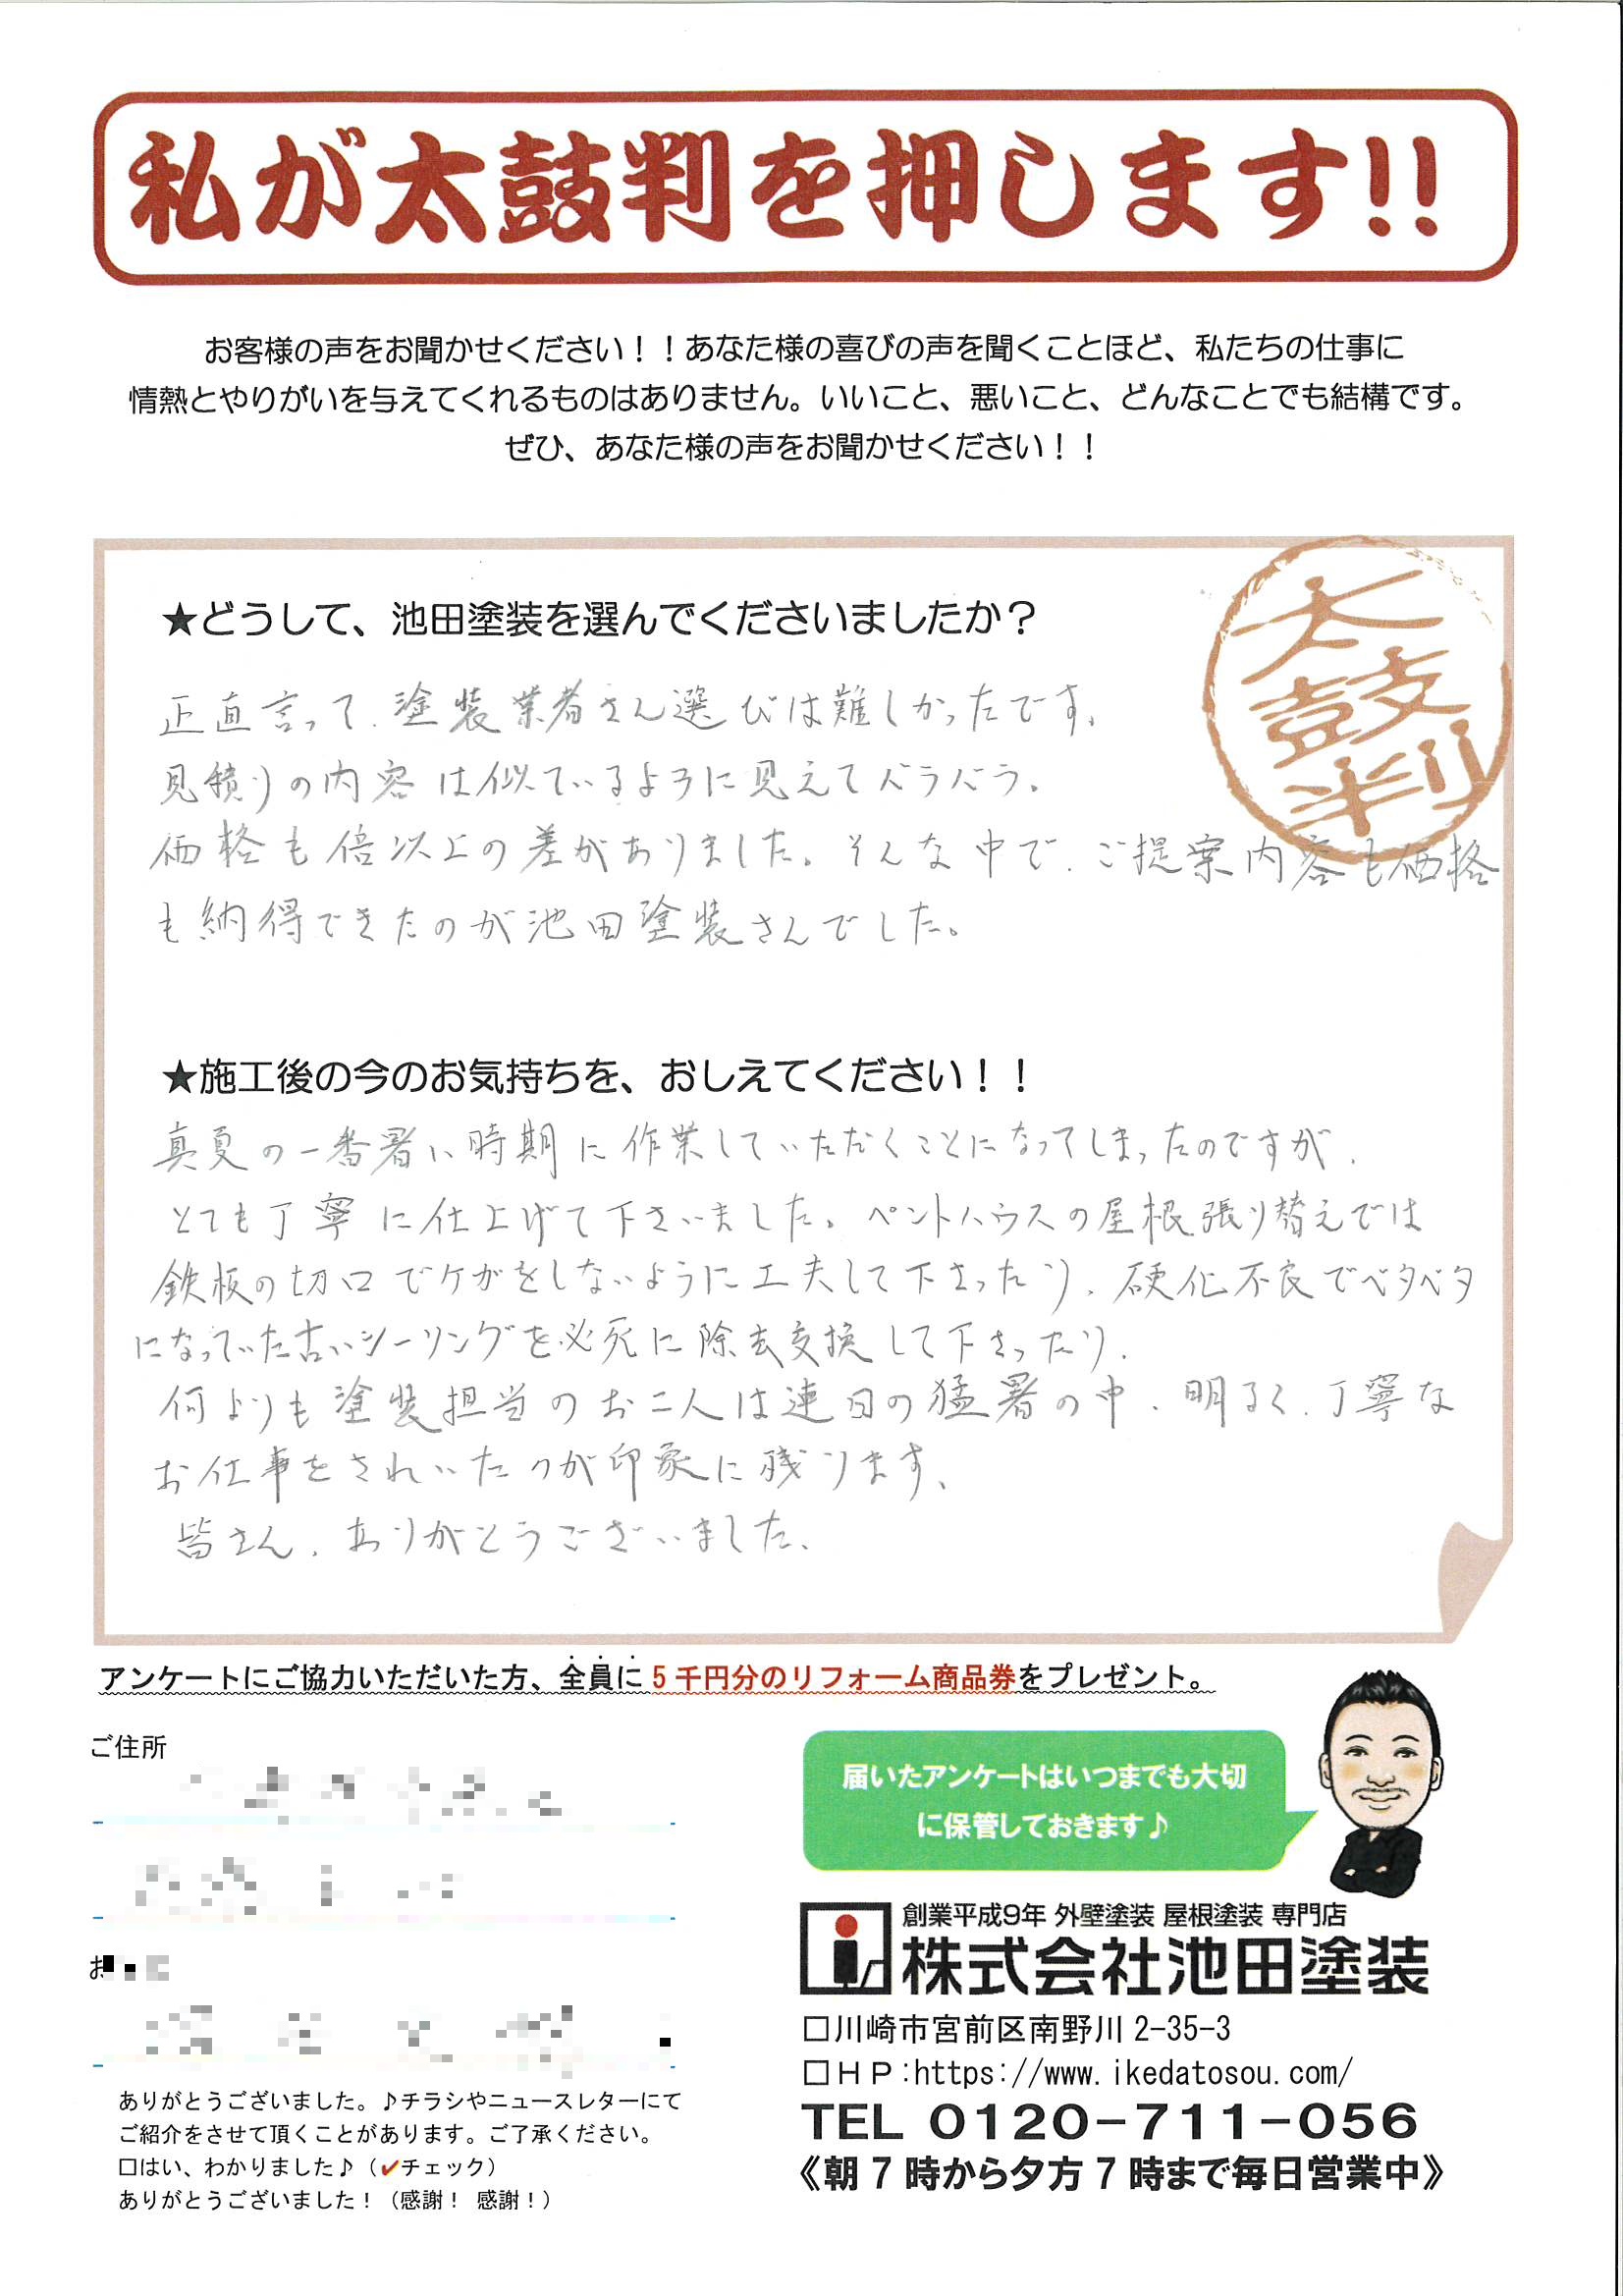 私が太鼓判を押します!!
お客様の声をお聞かせください！！あなた様の喜びの声を聞くことほど、私たちの仕事に
情熱とやりがいを与えてくれるものはありません。いいこと、悪いこと、どんなことでも結構です。
ぜひ、あなた様の声をお聞かせください！！
太鼓判
★どうして、池田塗装を選んでくださいましたか？
正直言って、塗装業者さん選びは難しかったです。
見積りの内容は似ているように見えてバラバラ。
価格も倍以上の差がありました。そんな中で、ご提案内容も価格
も納得できたのが池田塗装さんでした。
★施工後の今のお気持ちを、おしえてください！！
真夏の一番暑い時期に作業していただくことになってしまったのですが、
とても丁寧に仕上げて下さいました。ペントハウスの屋根張り替えでは
鉄板の切口でケガをしないように工夫して下さったり、硬化不良でベタベタ
になっていた古いシーリングを必死に除去交換して下さったり、
何よりも塗装担当のお二人は連日の猛暑の中、明るく、丁寧な
お仕事をされいたのが印象に残ります。
皆さん、ありがとうございました。
アンケートにご協力いただいた方、全員に5千円分のリフォーム商品券をプレゼント。
ご住所
届いたアンケートはいつまでも大切
に保管しておきます♪
創業平成9年 外壁塗装 屋根塗装 専門店
株式会社池田塗装
□川崎市宮前区南野川2-35-3
□ＨＰ:https://www.ikedatosou.com/
TEL 0120-711-056
《朝7時から夕方7時まで毎日営業中》
お
ありがとうございました。♪チラシやニュースレターにて
ご紹介をさせて頂くことがあります。ご了承ください。
□はい、わかりました♪（✔チェック）
ありがとうございました！（感謝！ 感謝！）